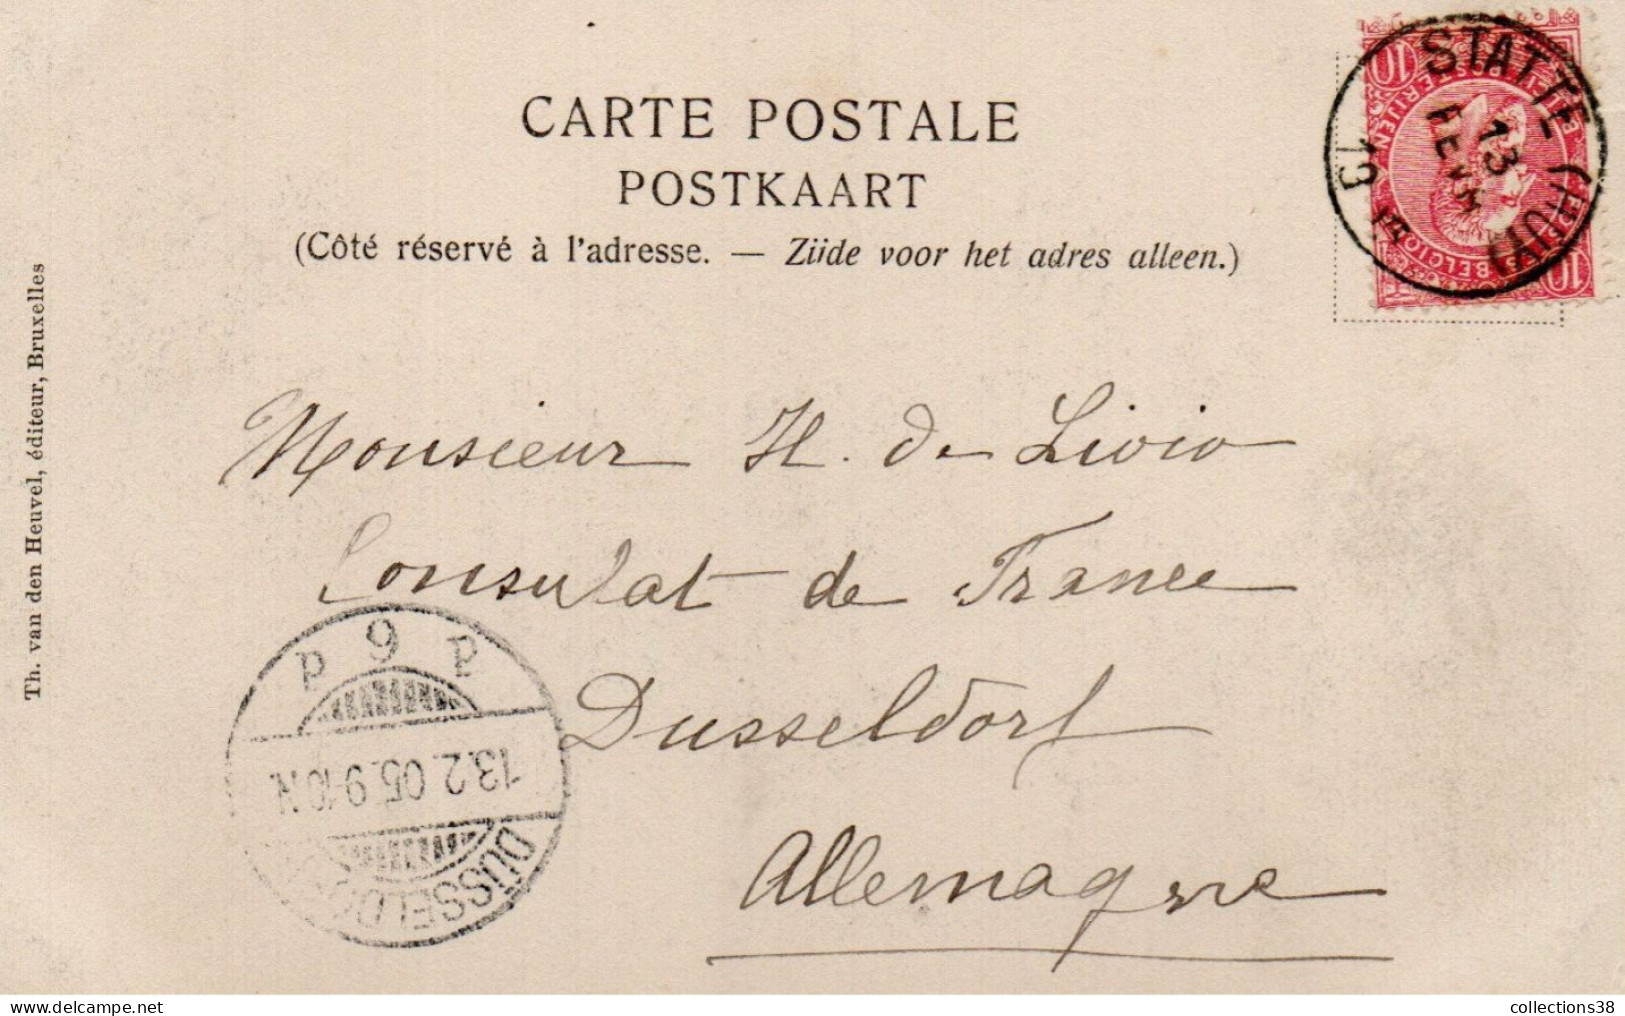 CARTE POSTALE
POSTKAART
(Côté réservé à l'adresse. — Zijde voor het adres alleen.)
Th. van den Heuvel, éditeur, Bruxelles
STATTE (HUY)
13
FEVR
13
10
10
POSTERIJEN
Monsieur H. de Livio
Consulat de France
Dusseldorf
Allemagne
9
13.2.05.9-10N.
DÜSSELDORF
collections38